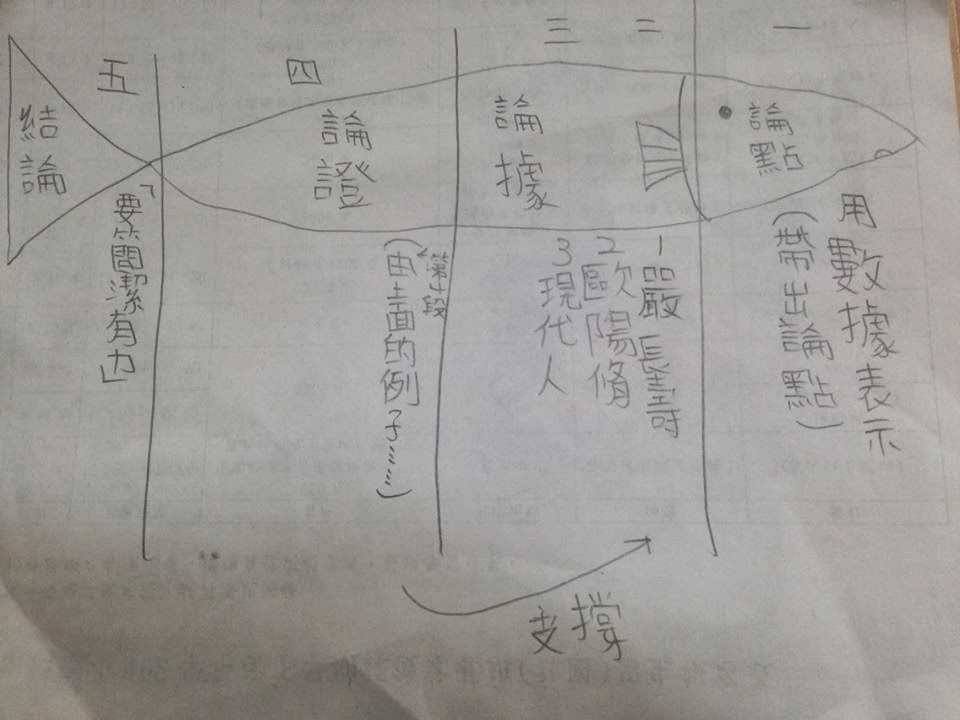 一
論點
用數據表示
(帶出論點)
二
三
論據
1嚴長壽
2歐陽脩
3現代人
四
論證
(由上面的例子……)
五
結論
「要簡潔有力」
支撐